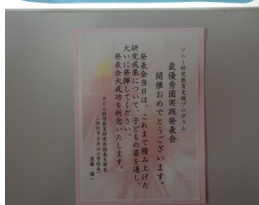 ソニー幼児教育支援プログラム
最優秀園実践発表会
開催おめでとうございます。
発表会当日は、これまで積み上げた
研究成果について、子どもの姿を通し、
大いに発揮してください。
発表会大成功を祈念いたします。